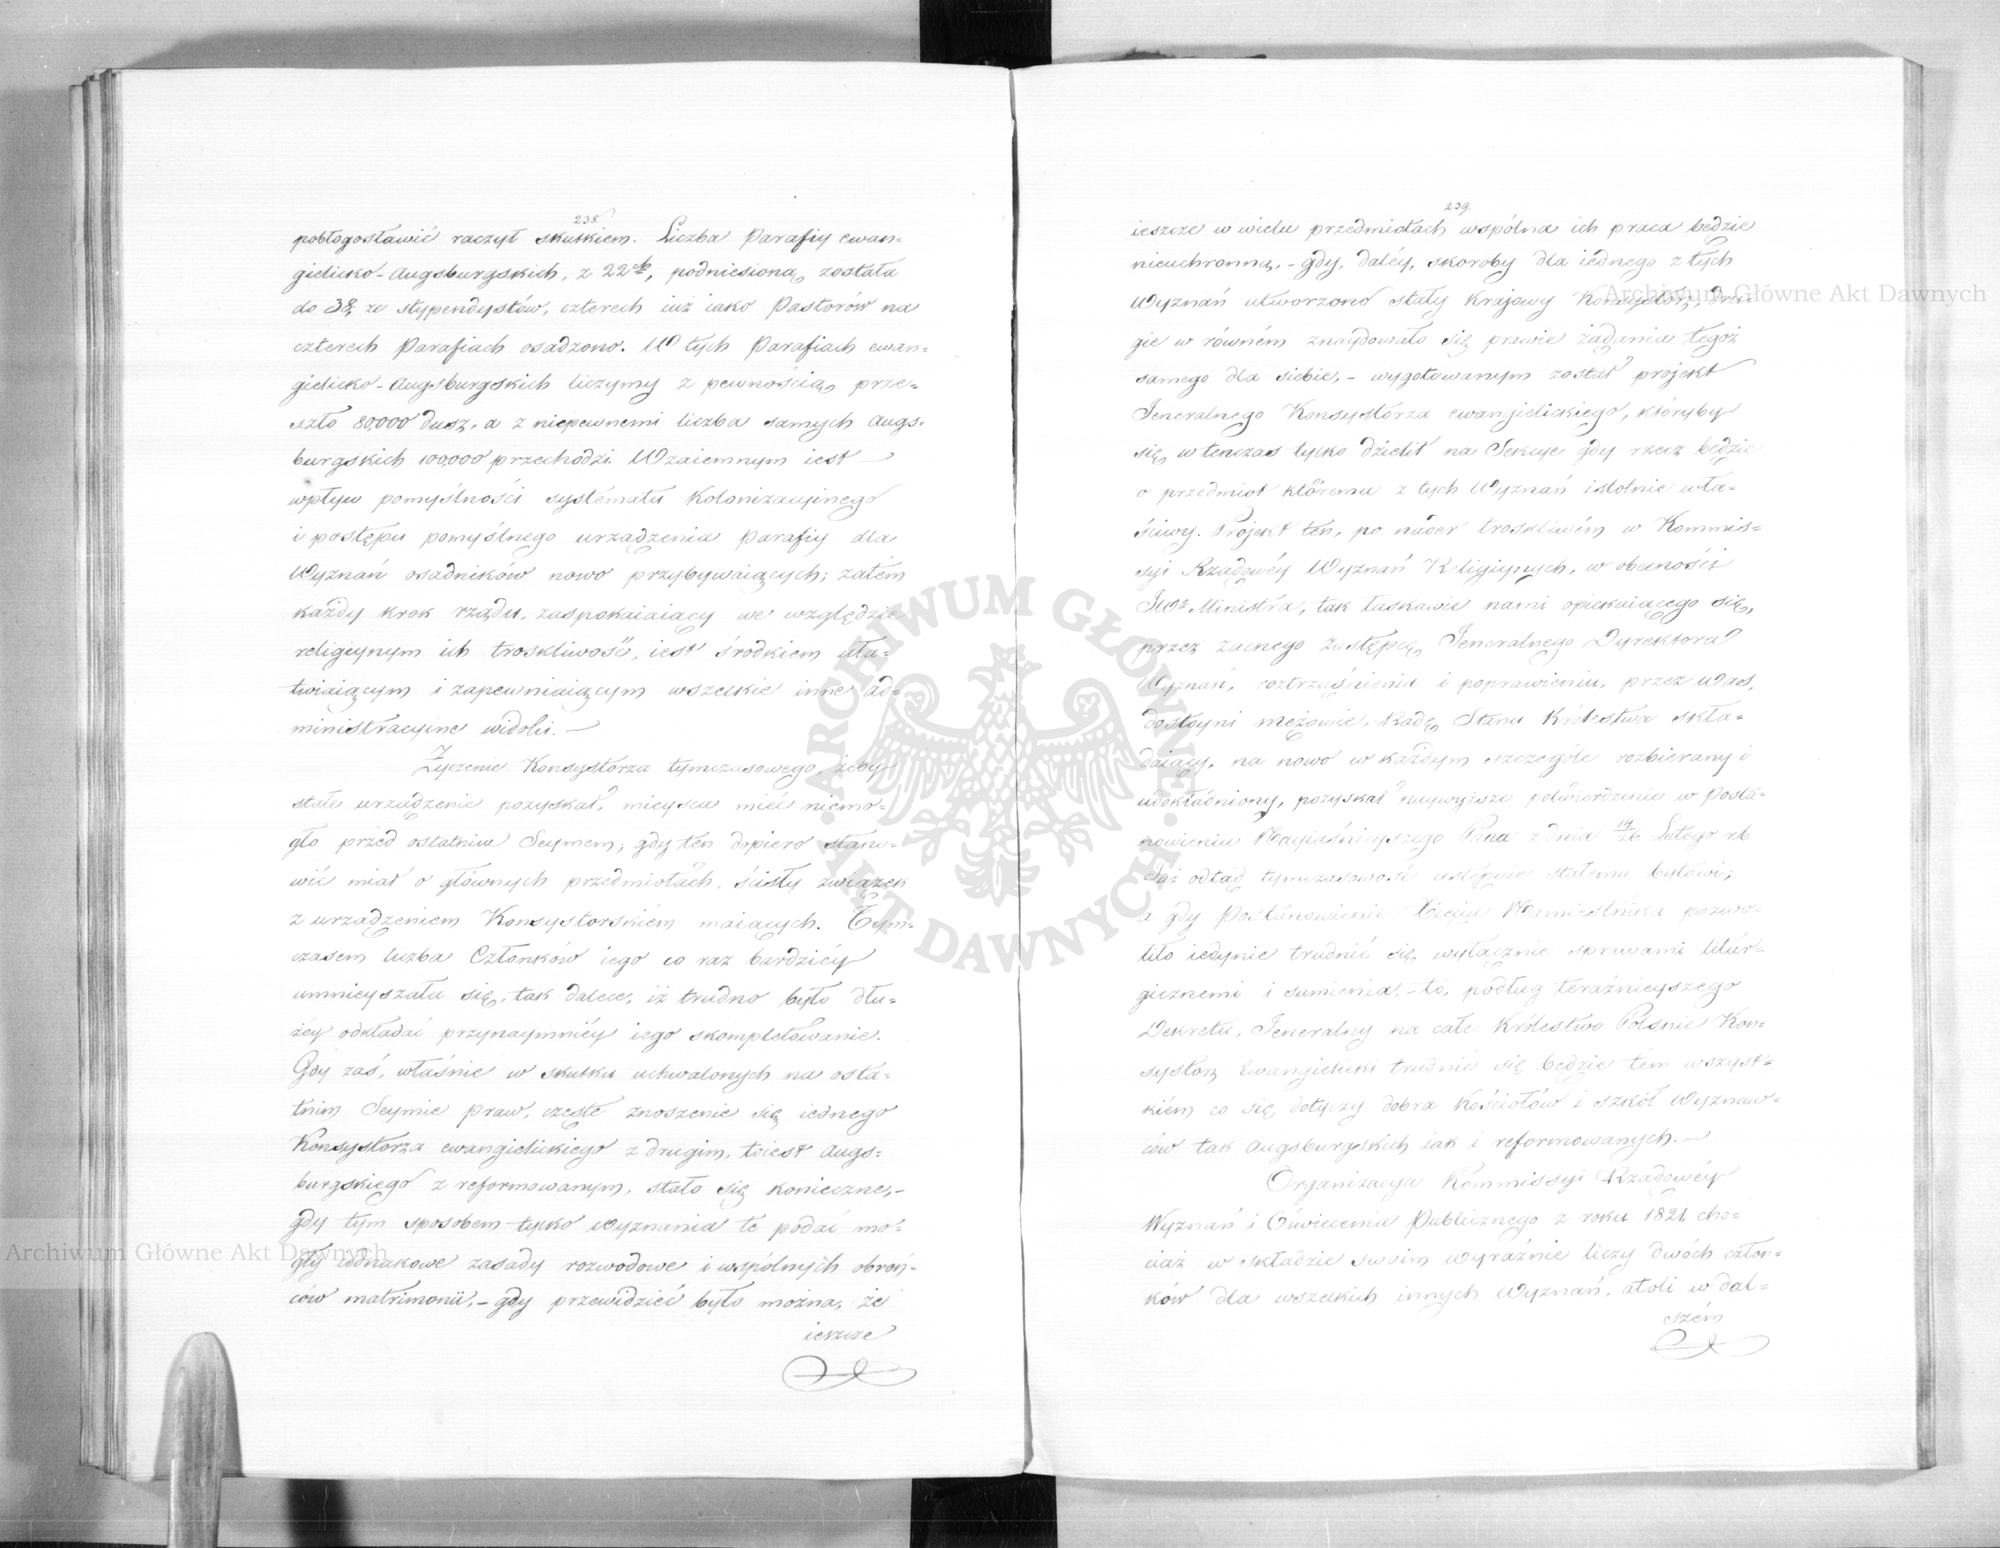 238.
pobłogosławić raczył skutkiem. Liczba Parafiy ewan=
gielicko-Augsburgskich, z 22ch, podniesioną została
do 38, ze stypendystów, czterech iuż iako Pastorów na
czterech Parafiach osadzono. W tych Parafiach ewan=
gielicko-Augsburgskich liczymy z pewnością prze=
szło 80,000 dusz, a z niepewnemi liczba samych Augs=
burgskich 100,000 przechodzi. Wzaiemnym iest —
wpływ pomyślności systematu Kolonizacyinego
i postępu pomyślnego urządzenia Parafiy dla
Wyznań osadników nowo przybywaiących; zatém
każdy krok rządu, zaspokaiaiący we względzie
religiynym ich troskliwość, iest środkiem uła=
twiaiącym i zapewniaiącym wszelkie inne ad=
ministracyine widoki. —
Życzenie Konsystorza tymczasowego, żeby
stałe urządzenie pozyskał, mieysca mieć niemo=
gło przed ostatnim Seymem; gdy ten dopiero stano=
wić miał o głównych przedmiotach, ścisły związek
z urządzeniem Konsystorskiém maiących. Tym=
czasem liczba Członków iego co raz bardziéy
umnieyszała się, tak dalece, iż trudno było dłu=
żéy odkładać przynaymniéy iego skompletowanie.
Gdy zaś, właśnie w skutku uchwalonych na osta=
tnim Seymie praw, częste znoszenie się iednego
Konsystorza ewangielickiego z drugim, toiest Augs=
burgskiego z reformowanym, stało się konieczne,-
gdy tym sposobem tylko wyznania te podać mo=
gły iednakowe zasady rozwodowe i wspólnych obroń=
ców matrimonii,- gdy przewidzieć było można, że
ieszcze
239.
ieszcze w wielu przedmiotach wspólna ich praca będzie
nieuchronną,- gdy, daléy, skoroby dla iednego z tych
Wyznań utworzono stały Krajowy Konsystorz, dru=
gie w równém znaydowało się prawie żądania tegoż
samego dla siebie,- wygotowanym został projekt
Jeneralnego Konsystorza ewangielickiego, któryby
się wtenczas tylko dzielił na Sekcye gdy rzecz będzie
o przedmiot któremu z tych Wyznań istotnie wła=
ściwy. Projekt ten, po nader troskliwém w Kommis=
syi Rządowéy Wyznań Religiynych, w obecności
JWo Ministra, tak łaskawie nami opiekuiącego się,
przez zacnego Zastępcę Jeneralnego Dyrektora
Wyznań, roztrząśnieniu i poprawieniu, przez Was,
dostoyni mężowie, Radę Stanu Królestwa skła=
daiący, na nowo w każdym szczególe rozbierany i
udokładniony, pozyskał naywyższe potwierdzenie w Posta=
nowieniu Nayiaśnieyszego Pana z dnia 14/26 Lutego r.b
Już odtąd tymczasowość ustępuie stałemu bytowi;
a gdy Postanowienie Xięcia Namiestnika pozwo=
liło iedynie trudnić się wyłącznie sprawami litur=
gicznemi i sumienia,- to, podług teraźnieyszego
Dekretu, Jeneralny na całe Królestwo Polskie Kon=
systorz Ewangielicki trudnić się będzie tém wszyst=
kiém co się dotyczy dobra Kościołów i szkół Wyznaw=
ców tak Augsburgskich iak i reformowanych. —
Organizacya Kommissyi Rządowéy
Wyznań i Oświecenia Publicznego z roku 1821, cho=
ciaż w składzie swoim wyraźnie liczy dwóch człon=
ków dla wszelkich innych Wyznań, atoli w dal=
szém
Archiwum Główne Akt Dawnych
Archiwum Główne Akt Dawnych
ARCHIWUM GŁÓWNE AKT DAWNYCH